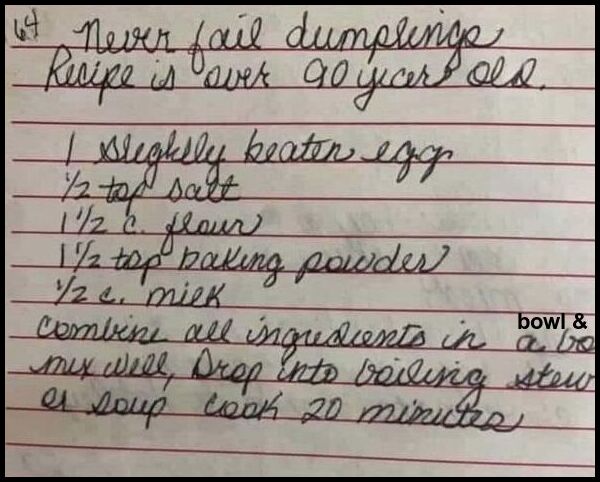 64 Never fail dumplings
Recipe is over 90 years old.
1 slightly beaten egg
1/2 tsp salt
1 1/2 c. flour
1 1/2 tsp baking powder
1/2 c. milk
bowl &
Combine all ingredients in a bo
mix well, Drop into boiling stew
or soup cook 20 minutes